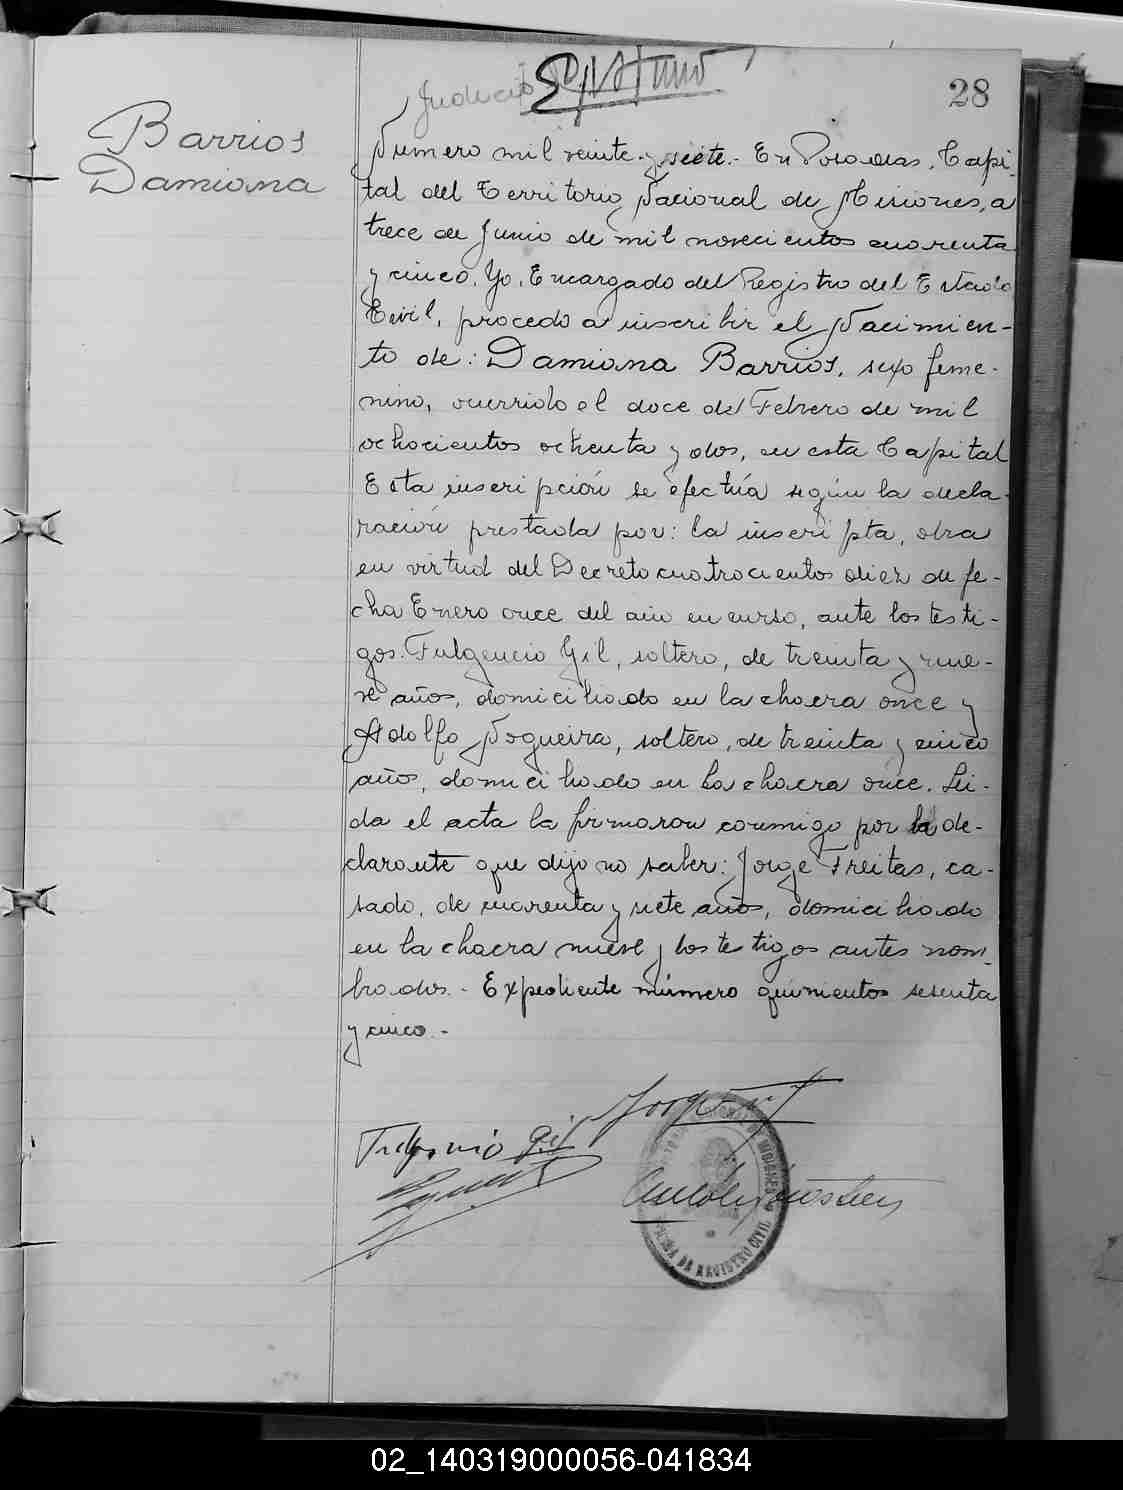 28
Barrios
Damiana
Numero mil veinte y siete.- En Posadas, Capi-
tal del Territorio Nacional de Misiones, a
trece de Junio de mil novecientos cuarenta
y cinco. Yo, Encargado del Registro del Estado
Civil, procedo a inscribir el Nacimien-
to de: Damiana Barrios, sexo feme-
nino, ocurrido el doce de Febrero de mil
ochocientos ochenta y dos, en esta Capital
Esta inscripción se efectúa según la decla-
ración prestada por: la inscripta, obra
en virtud del Decreto cuatrocientos diez de fe-
cha Enero once del año en curso, ante los testi-
gos: Fulgencio Gil, soltero, de treinta y nue-
ve años, domiciliado en la chacra once y
Adolfo Nogueira, soltero, de treinta y cinco
años, domiciliado en la chacra once. Leí-
da el acta la firmaron conmigo por la de-
clarante que dijo no saber: Jorge Freitas, ca-
sado, de cuarenta y siete años, domiciliado
en la chacra nueve y los testigos antes nom-
brados.- Expediente número quinientos sesenta
y cinco.-
Gil
REGISTRO CIVIL
02_140319000056-041834